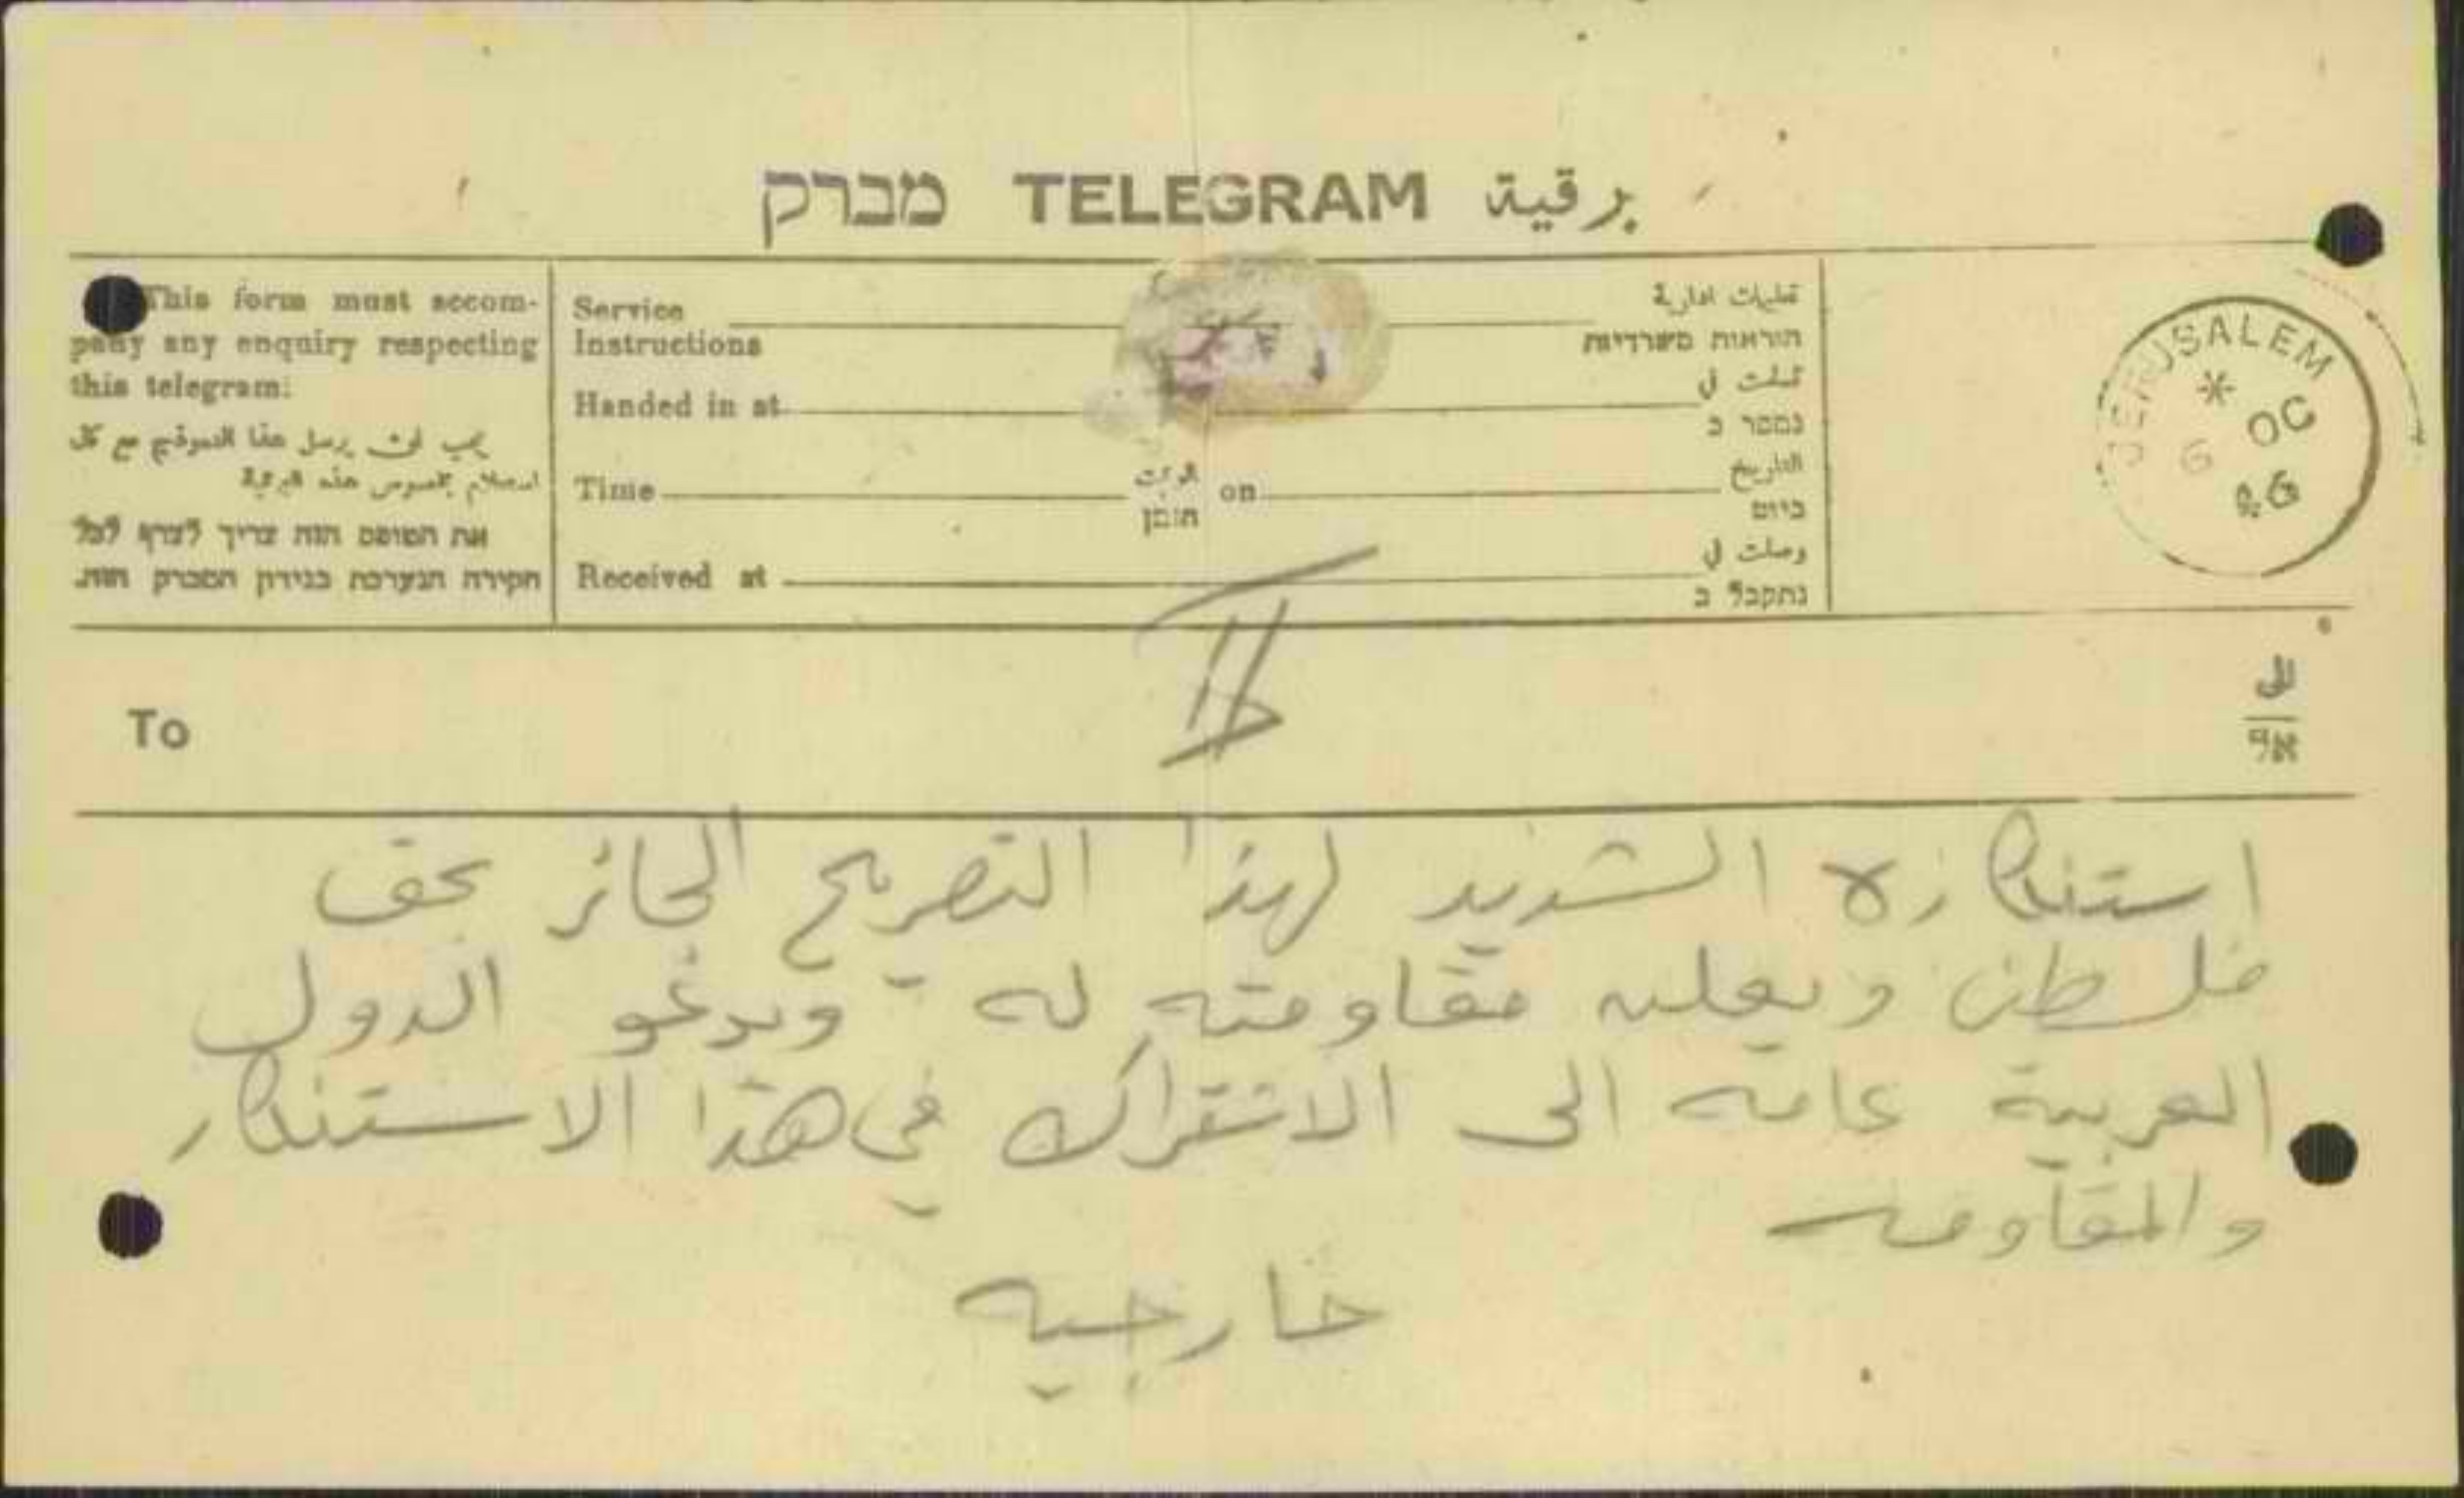 מברק TELEGRAM برقية
This form must accom-
pany any enquiry respecting
this telegram:
يجب ان يرسل هذا النموذج مع كل
استعلام بخصوص هذه البرقية
את הטופס הזה צריך לצרף לכל
חקירה הנערכת בנידון המברק הזה.
Service تعليمات ادارية
Instructions הוראות משרדיות
Handed in at سلمت في
נמסר ב
Time الوقت on التاريخ
הזמן ביום
Received at وصلت في
נתקבל ב
JERUSALEM
*
6 OC
46
II
To الى
אל
استنكاره الشديد لهذا التصريح الجائر بحق
فلسطين ويعلن مقاومته له ويدعو الدول
العربية عامة الى الاشتراك في هذا الاستنكار
والمقاومه
خارجيه